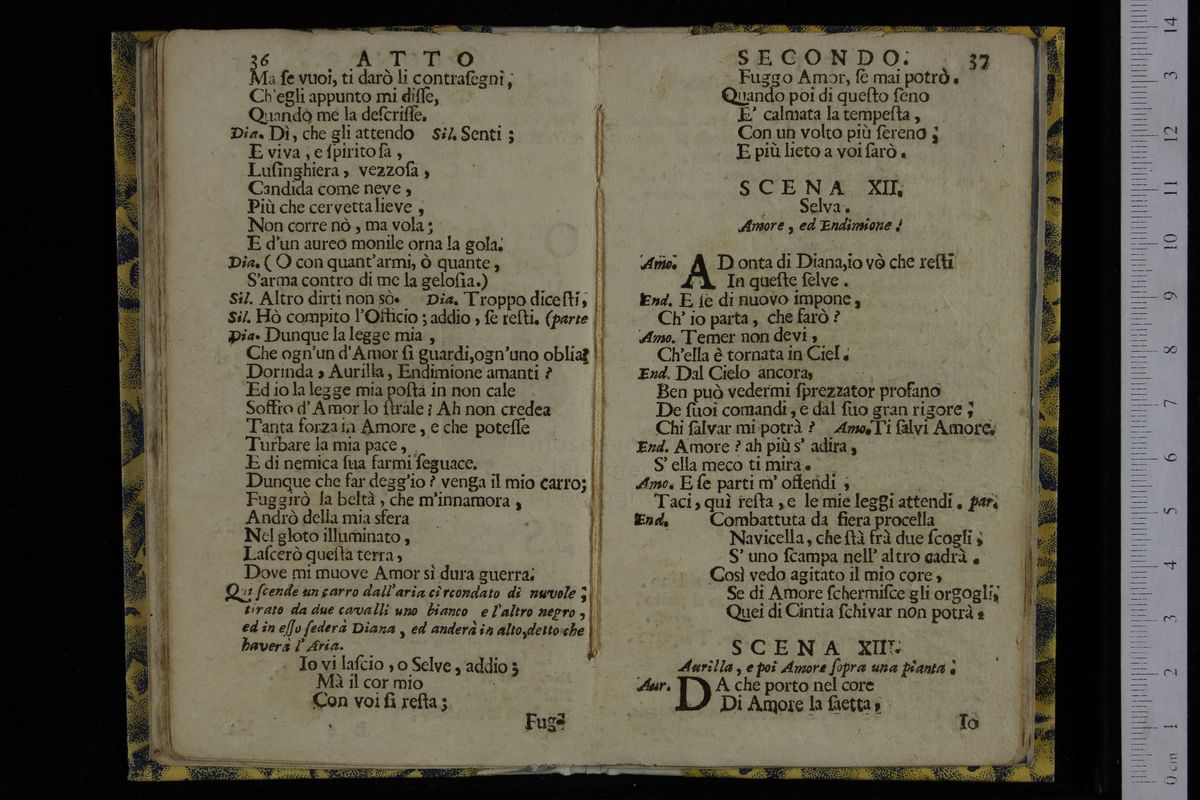 36 ATTO
Ma ſe vuoi, ti darò li contraſegni,
Ch'egli appunto mi diſſe,
Quando me la deſcriſſe.
Dia. Dì, che gli attendo Sil. Senti ;
E viva , e ſpiritoſa ,
Luſinghiera , vezzoſa ,
Candida come neve ,
Più che cervetta lieve ,
Non corre nò , ma vola ;
E d'un aureo monile orna la gola.
Dia. ( O con quant'armi, ò quante ,
S'arma contro di me la geloſia.)
Sil. Altro dirti non sò. Dia. Troppo diceſti ;
Sil. Hò compito l'Officio ; addio , ſe reſti. (parte
Dia. Dunque la legge mia ,
Che ogn'un d'Amor ſi guardi,ogn'uno oblia?
Dorinda , Aurilla , Endimione amanti ?
Ed io la legge mia poſta in non cale
Soffro d'Amor lo ſtrale ? Ah non credea
Tanta forza in Amore , e che poteſſe
Turbare la mia pace ,
E di nemica ſua farmi ſeguace.
Dunque che far degg'io ? venga il mio carro;
Fuggirò la beltà , che m'innamora ,
Andrò della mia sfera
Nel gloto illuminato ,
Laſcerò queſta terra ,
Dove mi muove Amor sì dura guerra.
Qui ſcende un carro dall'aria circondato di nuvole ;
tirato da due cavalli uno bianco e l'altro negro ,
ed in eſſo ſederà Diana , ed anderà in alto,detto che
haverà l'Aria.
Io vi laſcio , o Selve , addio ;
Mà il cor mio
Con voi ſi reſta ;
Fug-
SECONDO. 37
Fuggo Amor, ſe mai potrò .
Quando poi di queſto ſeno
E' calmata la tempeſta ,
Con un volto più ſereno ;
E più lieto a voi ſarò .
SCENA XII.
Selva .
Amore , ed Endimione .
Amo. AD onta di Diana,io vò che reſti
In queſte ſelve .
End. E ſe di nuovo impone ,
Ch' io parta , che farò ?
Amo. Temer non devi ,
Ch'ella è tornata in Ciel .
End. Dal Cielo ancora,
Ben può vedermi ſprezzator profano
De ſuoi comandi , e dal ſuo gran rigore ;
Chi ſalvar mi potrà ? Amo. Ti ſalvi Amore.
End. Amore ? ah più s' adira ,
S' ella meco ti mira .
Amo. E ſe parti m' offendi ,
Taci , quì reſta , e le mie leggi attendi . par.
End. Combattuta da fiera procella
Navicella, che ſtà frà due ſcogli ;
S' uno ſcampa nell' altro cadrà .
Così vedo agitato il mio core ,
Se di Amore ſchermiſce gli orgogli;
Quei di Cintia ſchivar non potrà .
SCENA XIII.
Aurilla , e poi Amore ſopra una pianta .
Aur. DA che porto nel core
Di Amore la ſaetta ,
Io